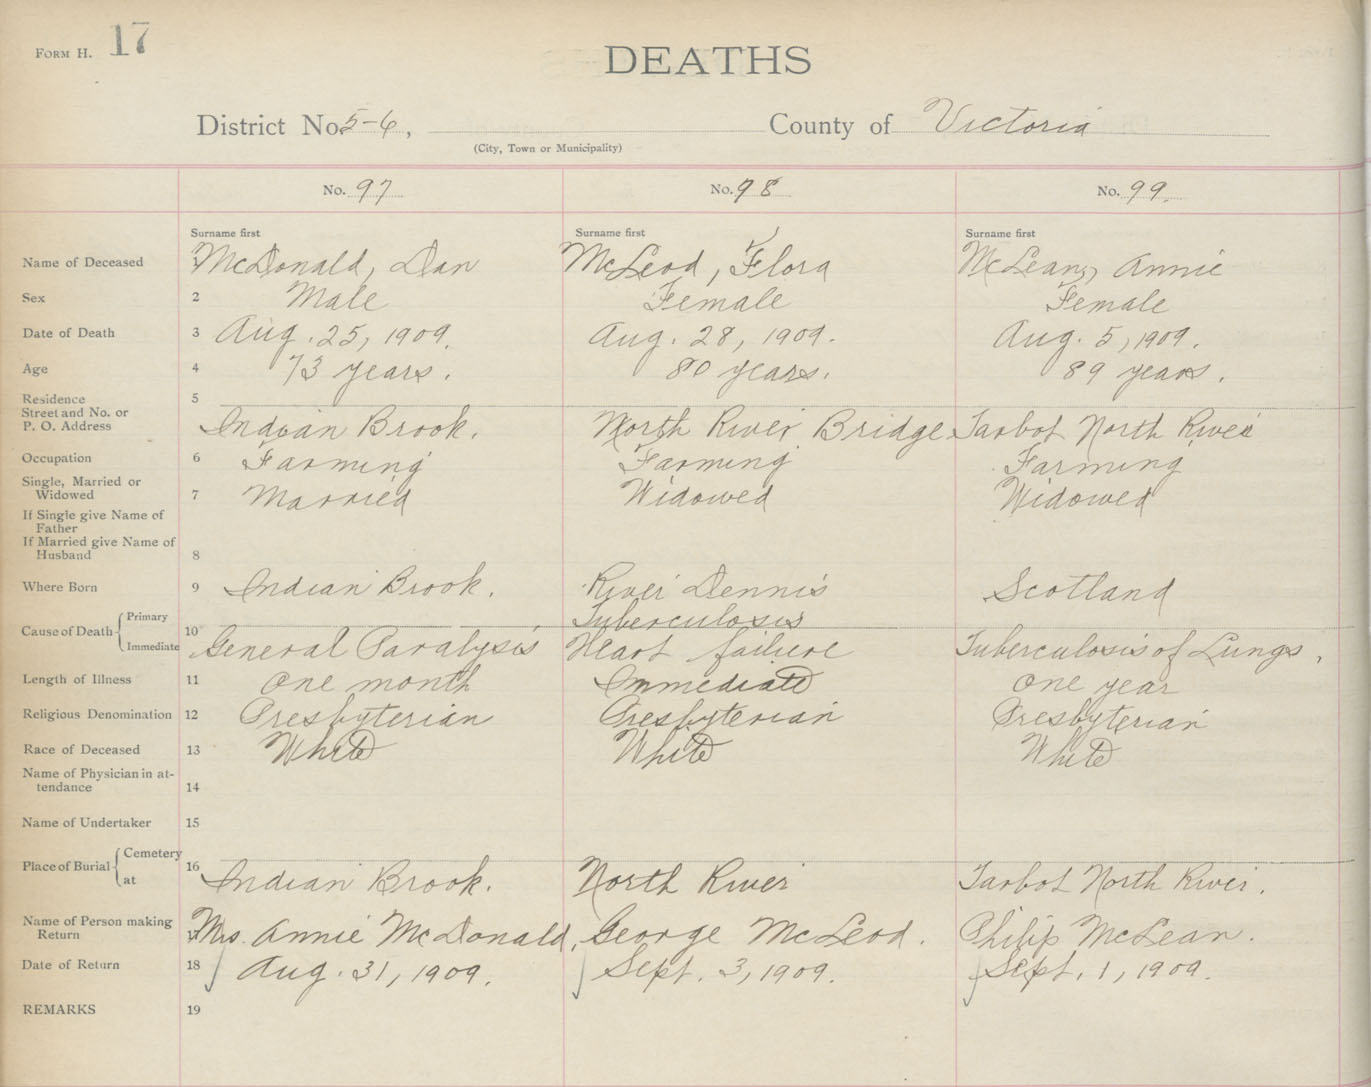 FORM H. 17
DEATHS
District No. 5-6, County of Victoria
(City, Town or Municipality)
No. 97 No. 98 No. 99.
Surname first Surname first Surname first
Name of Deceased 1 McDonald, Dan McLeod, Flora McLean, Annie
Sex 2 Male Female Female
Date of Death 3 Aug. 25, 1909. Aug. 28, 1909. Aug. 5, 1909.
Age 4 73 years. 80 years. 89 years.
Residence 5
Street and No. or
P. O. Address Indian Brook. North River Bridge Tarbot North River
Occupation 6 Farming Farming Farming
Single, Married or
Widowed 7 Married Widowed Widowed
If Single give Name of
Father
If Married give Name of
Husband 8
Where Born 9 Indian Brook. River Dennis Scotland
Primary Tuberculosis
Cause of Death 10
Immediate General Paralysis Heart failure Tuberculosis of Lungs.
Length of Illness 11 One month Immediate One year
Religious Denomination 12 Presbyterian Presbyterian Presbyterian
Race of Deceased 13 White White White
Name of Physician in at-
tendance 14
Name of Undertaker 15
Cemetery
Place of Burial 16
at Indian Brook. North River Tarbot North River.
Name of Person making
Return 17 Mrs. Annie McDonald, George McLeod. Philip McLean.
Date of Return 18 Aug. 31, 1909. Sept. 3, 1909. Sept. 1, 1909.
REMARKS 19